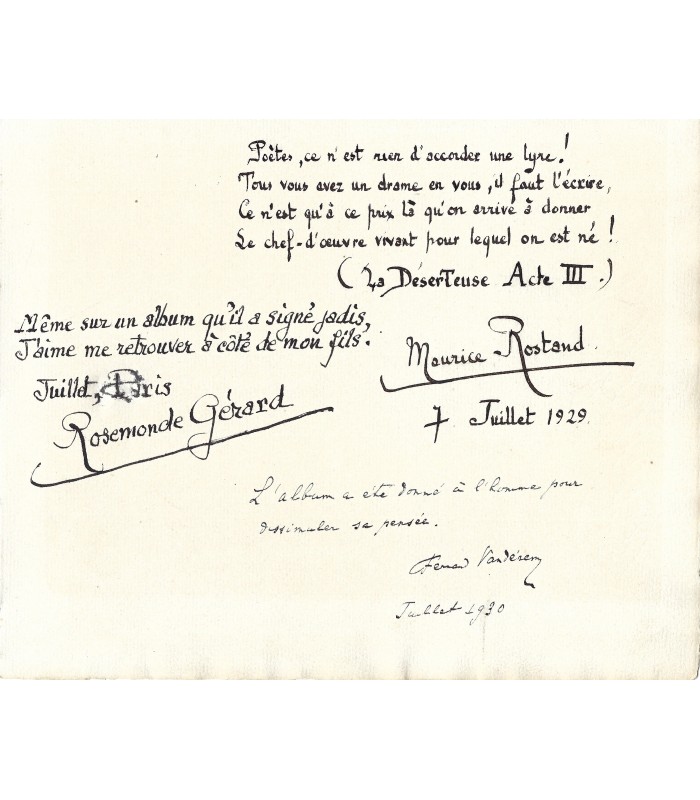 Poètes, ce n'est rien d'accorder une lyre !
Tous vous avez un drame en vous, il faut l'écrire,
Ce n'est qu'à ce prix là qu'on arrive à donner
Le chef-d'œuvre vivant pour lequel on est né !
(La Déserteuse Acte III.)
Maurice Rostand.
7 Juillet 1929.
Même sur un album qu'il a signé jadis,
J'aime me retrouver à côté de mon fils.
Juillet, Paris
Rosemonde Gérard
L'album a été donné à l'homme pour
dissimuler sa pensée.
Fernand Vandérem
Juillet 1930